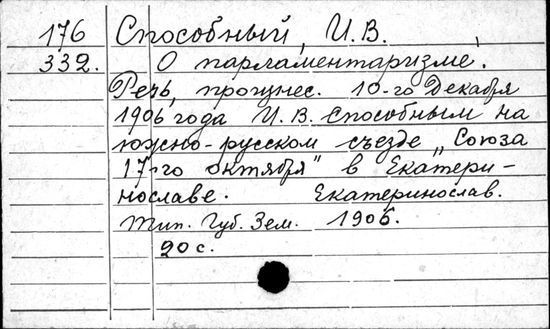 176 Способный, И. В.
332. О парламентаризме.
Речь, произнес. 10-го Декабря
1906 года И. В. Способным на
южно-русском съезде „Союза
17-го октября" в Екатери-
нославе. Екатеринослав.
Тип. Губ. Зем. 1906.
20 с.